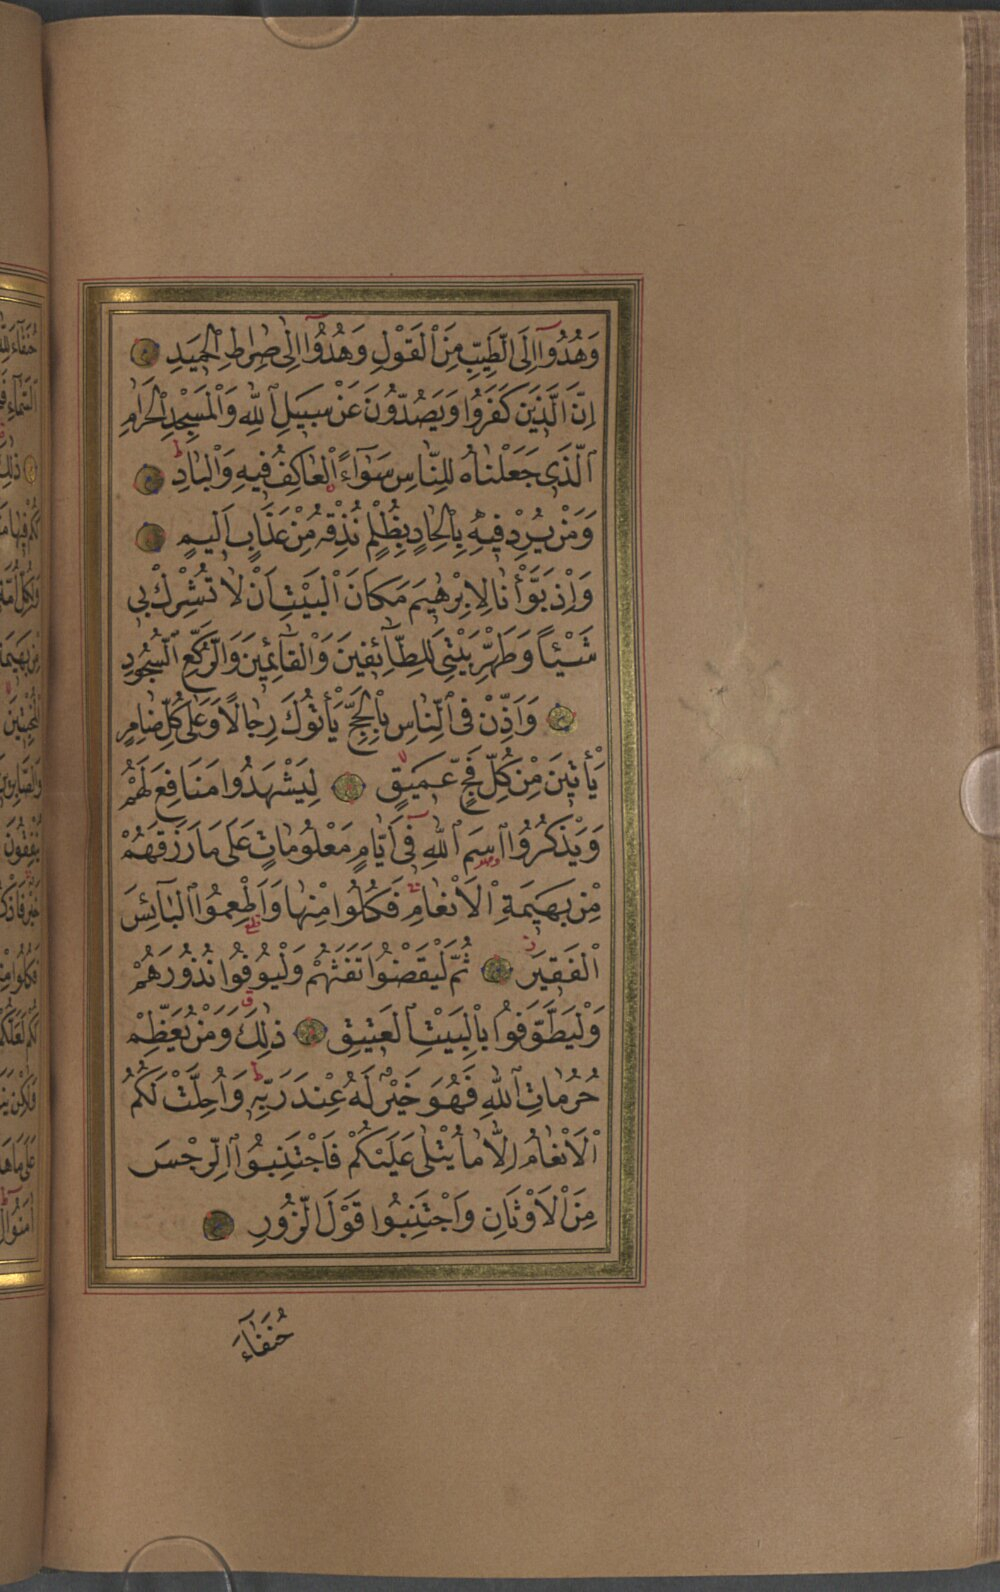 وَهُدُوٓا اِلَى الطَّيِّبِ مِنَ الْقَوْلِ وَهُدُوٓا اِلٰى صِرَاطِ الْحَمِيدِ
اِنَّ الَّذِينَ كَفَرُوا وَيَصُدُّونَ عَنْ سَبِيلِ اللّٰهِ وَالْمَسْجِدِ الْحَرَامِ
الَّذِى جَعَلْنَاهُ لِلنَّاسِ سَوَآءً الْعَاكِفُ فِيهِ وَالْبَادِ ط
وَمَنْ يُرِدْ فِيهِ بِاِلْحَادٍ بِظُلْمٍ نُذِقْهُ مِنْ عَذَابٍ اَلِيمٍ
وَاِذْ بَوَّأْنَا لِاِبْرٰهِيمَ مَكَانَ الْبَيْتِ اَنْ لَا تُشْرِكْ بِى
شَيْئًا وَطَهِّرْ بَيْتِىَ لِلطَّآئِفِينَ وَالْقَآئِمِينَ وَالرُّكَّعِ السُّجُودِ
وَاَذِّنْ فِى النَّاسِ بِالْحَجِّ يَأْتُوكَ رِجَالًا وَعَلٰى كُلِّ ضَامِرٍ
يَأْتِينَ مِنْ كُلِّ فَجٍّ عَمِيقٍ لا لِيَشْهَدُوا مَنَافِعَ لَهُمْ
وَيَذْكُرُوا اسْمَ اللّٰهِ فِىٓ اَيَّامٍ مَعْلُومَاتٍ عَلٰى مَا رَزَقَهُمْ
مِنْ بَهِيمَةِ الْاَنْعَامِ فَكُلُوا مِنْهَا وَاَطْعِمُوا الْبَآئِسَ
الْفَقِيرَ ز ثُمَّ لْيَقْضُوا تَفَثَهُمْ وَلْيُوفُوا نُذُورَهُمْ
وَلْيَطَّوَّفُوا بِالْبَيْتِ الْعَتِيقِ ذٰلِكَ ق وَمَنْ يُعَظِّمْ
حُرُمَاتِ اللّٰهِ فَهُوَ خَيْرٌ لَهُ عِنْدَ رَبِّهِ ط وَاُحِلَّتْ لَكُمُ
الْاَنْعَامُ اِلَّا مَا يُتْلٰى عَلَيْكُمْ فَاجْتَنِبُوا الرِّجْسَ
مِنَ الْاَوْثَانِ وَاجْتَنِبُوا قَوْلَ الزُّورِ
حُنَفَآءَ